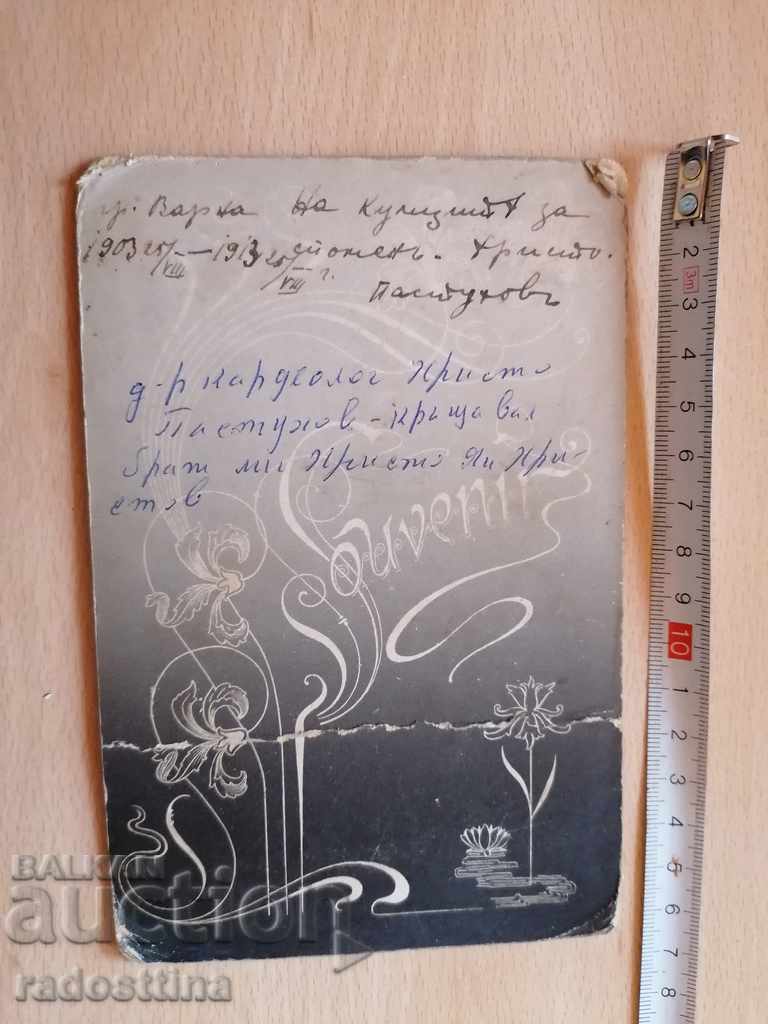 гр. Варна На кумицитѣ за
1903 25/VIII — 1913 25/VIII г. спомень. Христо.
Пастуховъ
д-р кардеолог Христо
Пастухов - кръщавал
брат ми Христо Ян. Хри-
стов
Souvenir
2 3m 3 4 5 6 7 8 9 10 1 2 3 4 5 6 7 8
BALKAN
auction
radosttina